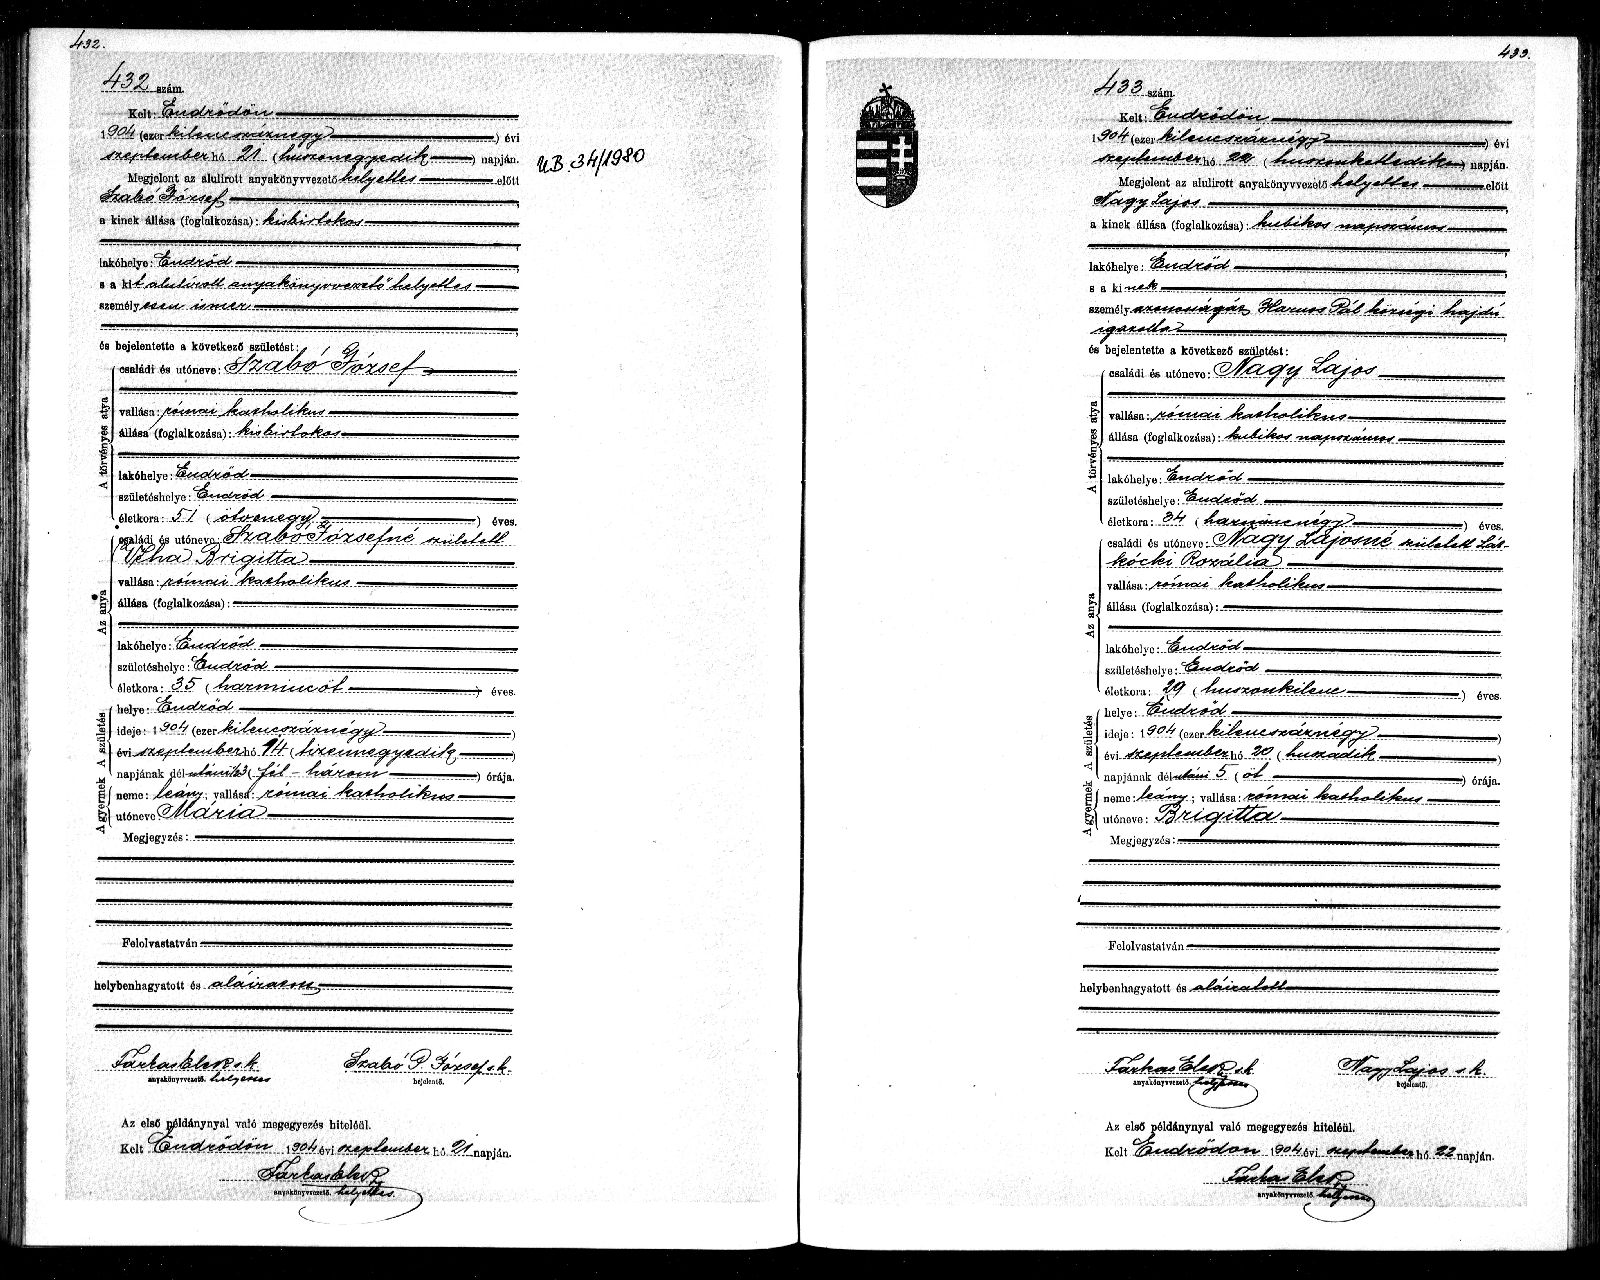 432.
432 szám.
Kelt: Endrődön
1904 (ezer kilencszáznégy) évi
szeptember hó 21 (huszonegyedik) napján.
Megjelent az alulirott anyakönyvvezető helyettes előtt
Szabó József
a kinek állása (foglalkozása): kisbirtokos
lakóhelye: Endrőd
s a kit alulírott anyakönyvvezető helyettes
személyesen ismer
és bejelentette a következő születést:
A törvényes atya
családi és utóneve: Szabó József
vallása: római katholikus
állása (foglalkozása): kisbirtokos
lakóhelye: Endrőd
születéshelye: Endrőd
életkora: 51 (ötvenegy) éves.
Az anya
családi és utóneve: Szabó Józsefné született
Uha Brigitta
vallása: római katholikus
állása (foglalkozása):
lakóhelye: Endrőd
születéshelye: Endrőd
életkora: 35 (harmincöt) éves.
A gyermek A születés
helye: Endrőd
ideje: 1904 (ezer kilencszáznégy)
évi szeptember hó 14 (tizennegyedik)
napjának délutáni ½3 (fél-három) órája.
neme: leány; vallása: római katholikus
utóneve Mária
Megjegyzés:
Felolvastatván
helybenhagyatott és aláiratott
Farkas Elek s.k.
anyakönyvvezető. helyettes
Szabó P. József s.k.
bejelentő.
Az első példánynyal való megegyezés hiteléül.
Kelt Endrődön 1904 évi szeptember hó 21 napján.
Farkas Elek
anyakönyvvezető. helyettes.
U.B. 34/1980
433.
433 szám.
Kelt: Endrődön
1904 (ezer kilencszáznégy) évi
szeptember hó 22 (huszonkettedik) napján.
Megjelent az alulirott anyakönyvvezető helyettes előtt
Nagy Lajos
a kinek állása (foglalkozása): kubikos napszámos
lakóhelye: Endrőd
s a kinek
személyazonosságát Harnos Pál községi hajdú
igazolta
és bejelentette a következő születést:
A törvényes atya
családi és utóneve: Nagy Lajos
vallása: római katholikus
állása (foglalkozása): kubikos napszámos
lakóhelye: Endrőd
születéshelye: Endrőd
életkora: 34 (harmincnégy) éves.
Az anya
családi és utóneve: Nagy Lajosné született Lát-
kócki Rozália
vallása: római katholikus
állása (foglalkozása):
lakóhelye: Endrőd
születéshelye: Endrőd
életkora: 29 (huszonkilenc) éves.
A gyermek A születés
helye: Endrőd
ideje: 1904 (ezer kilencszáznégy)
évi szeptember hó 20 (huszadik)
napjának délutáni 5 (öt) órája.
neme: leány; vallása: római katholikus
utóneve: Brigitta
Megjegyzés:
Felolvastatván
helybenhagyatott és aláiratott
Farkas Elek s.k.
anyakönyvvezető. helyettes
Nagy Lajos s.k.
bejelentő.
Az első példánynyal való megegyezés hiteléül.
Kelt Endrődön 1904 évi szeptember hó 22 napján.
Farkas Elek
anyakönyvvezető. helyettes